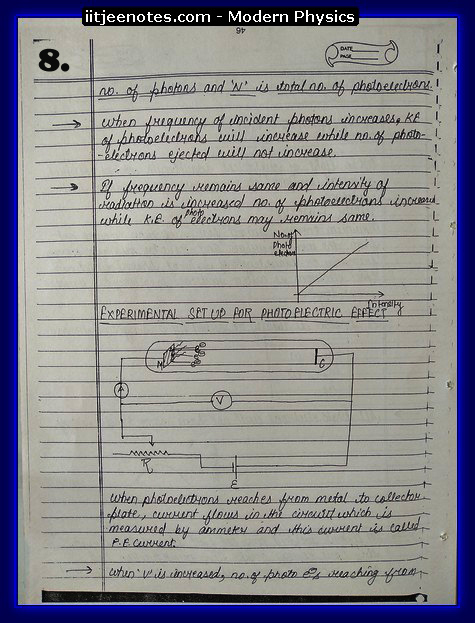 iitjeenotes.com - Modern Physics
46
8.
DATE
PAGE
no. of photons and 'N' is total no. of photoelectrons.
→ when frequency of incident photons increases, KE
of photoelectrons will increase while no. of photo-
-electrons ejected will not increase.
→ If frequency remains same and intensity of
radiation is increased no. of photoelectrons increases
while K.E. of photo electrons may remains same.
No. of
photo
electron
Intensity
EXPERIMENTAL SET UP FOR PHOTOELECTRIC EFFECT
M
C
A
V
R
E
when photoelectrons reaches from metal to collector
plate, current flows in the circuit which is
measured by ammeter and this current is called
P.E current.
→ when 'V' is increased, no. of photo e⁻s reaching from